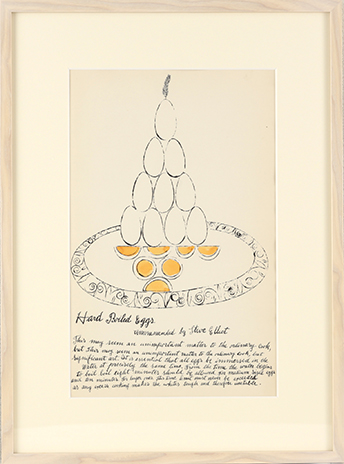 Hard Boiled Eggs
recommended by Steve Elliot
This may seem an unimportant matter to the ordinary cook,
but this may seem an unimportant matter to the ordinary cook, but
significant art. It is essential that all eggs be immersed in the
water at precisely the same time. From the time the water begins
to boil eight minutes should be allowed for medium sized eggs
and ten minutes for large ones. This time limit must never be exceeded
as any over cooking makes the whites tough and therefore